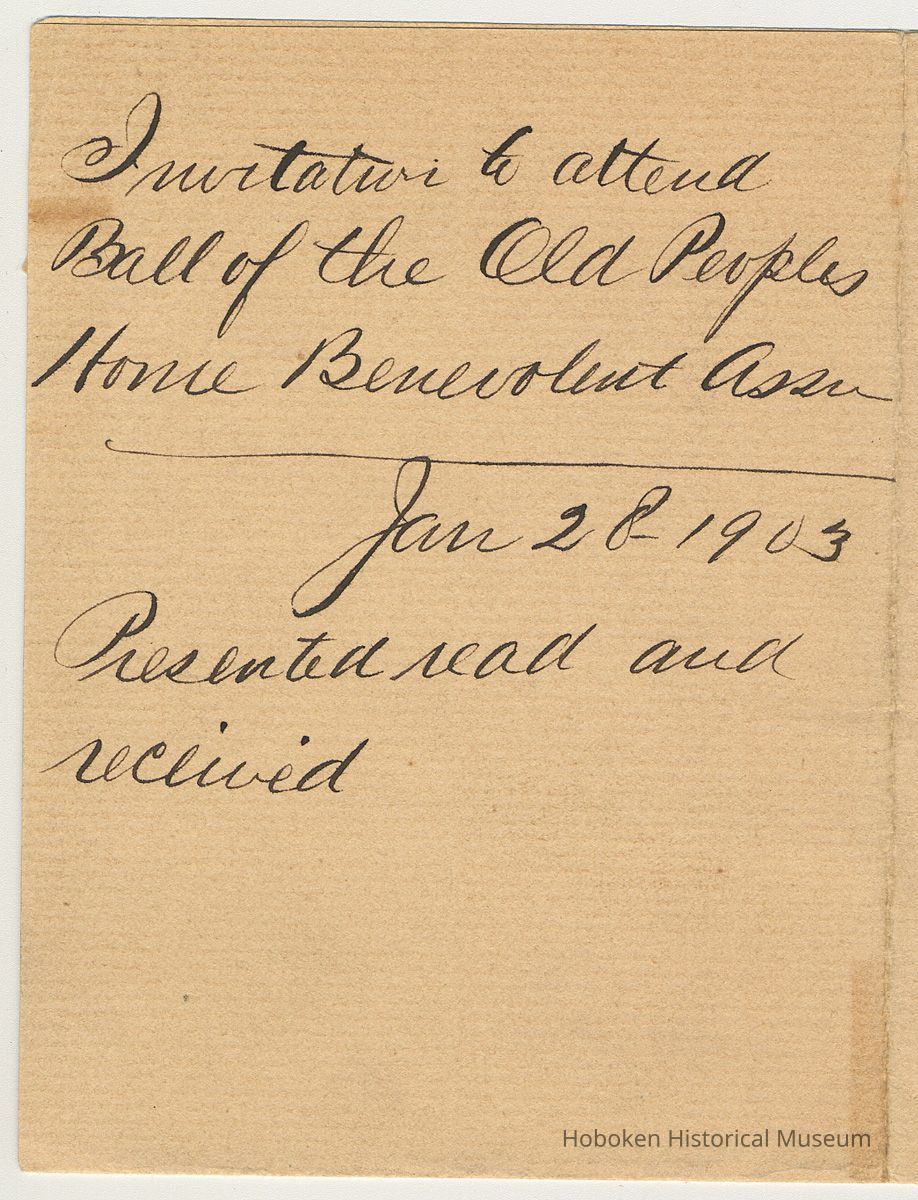 Invitation to attend
Ball of the Old Peoples
Home Benevolent Assn
Jan 28-1903
Presented read and
received
Hoboken Historical Museum